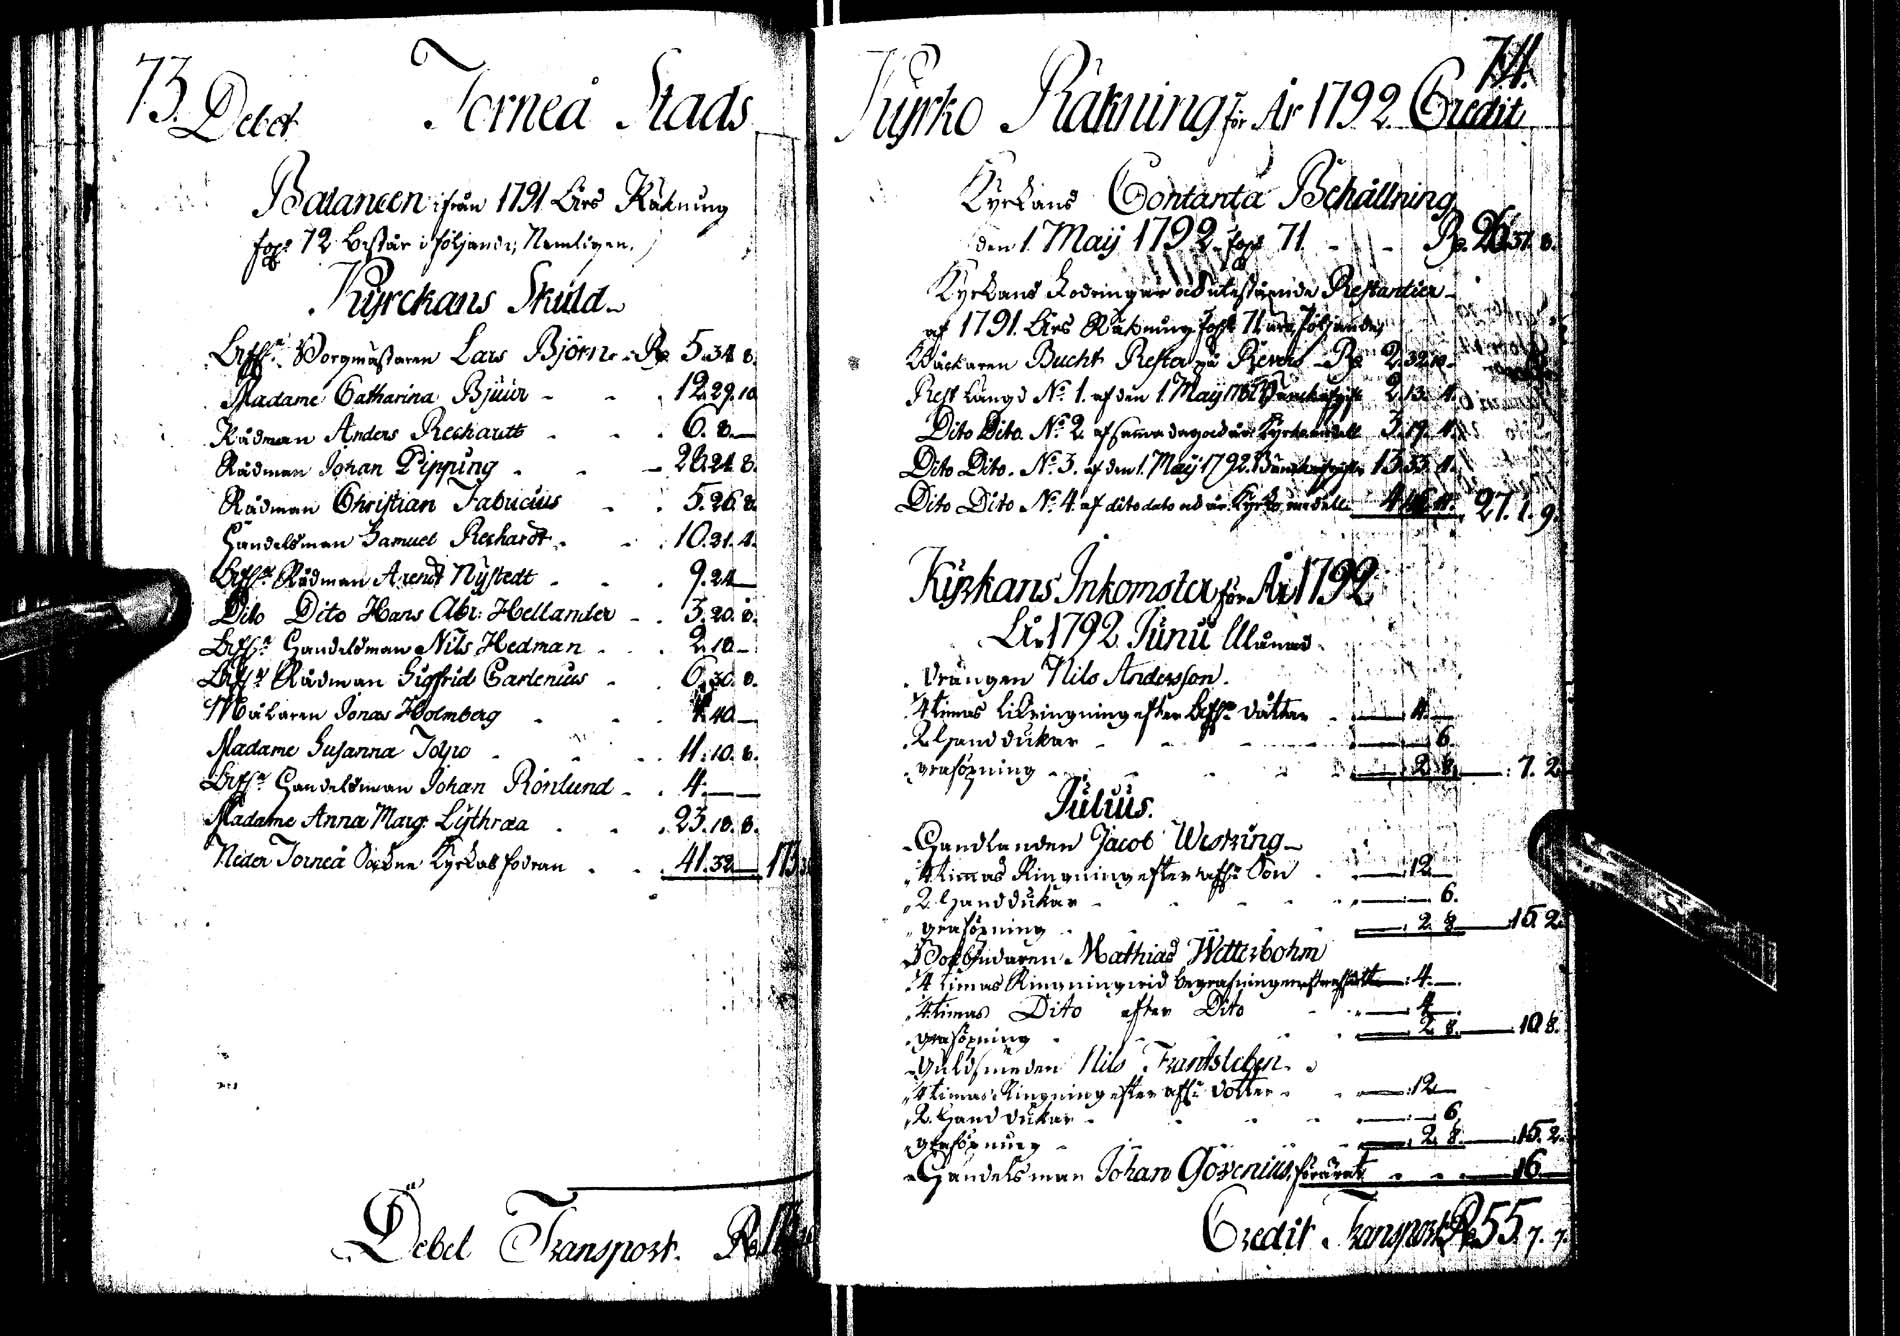 73. Debet Torneå Stads
Balancen ifrån 1791 Års Räkning
fol: 72 består i följande, Nemligen.
Kyrckans Skuld
Borgmästaren Lars Björn - Rd 5.34.8.
Madame Catharina Bjuur - - 12.29.10
Rådman Anders Rechardt - - 6.8.—
Rådman Johan Pippung - - 21.8.
Rådman Christian Fabricius - - 5.26.8.
Handelsman Samuel Rechardt - - 10.31.4.
Rådman Arendt Nystedt - - 9.24—
Dito Dito Hans Abr: Hellander - - 3.20.8.
Handelsman Nils Hedman - - 2.10—
Rådman Sigfrid Carlenius - - 6.30.8.
Målaren Jonas Holmberg - - 40.—
Madame Susanna Tolpo - - 11.10.8.
Handelsman Johan Rönlund - - 4.—
Madame Anna Marg: Lythræa - - 23.18.8.
Neder Torneå Sockne Kyrckas fodran - - 41.32.—
Debet Transport. Rd
74.
Kyrko Räkning för År 1792 Credit
Kyrkans Contanta Behållning
den 1 Maij 1792 fol 71. - - Rd. 26.31.8.
Kyrkans Fodringar och utestående Restantier
af 1791 Års Räkning fol 71 äro följande
Backaren Bucht Rester på Revers - Rd 2.32.10
Rest Längd No. 1. af den 1 Maij 2.13.4.
Dito Dito. No. 2 af samma dag och år 3.19.4.
Dito Dito. No. 3. af den 1 Maij 1792. 13.33.4.
Dito Dito No. 4. af dito dato och år 27.1.9.
Kyrkans Inkomster för År 1792
År 1792 Junii Månad
Drängen Nils Andersson.
4 timas likringning efter dotter - 4.—
2 Handdukar - - 6.
graföpning - - 2.8. — 7.2.
Julius.
Handlanden Jacob
4 timas Ringning efter Son - 12—
2 Handdukar - - 6.
graföpning - - 2.8. — 15.2.
Mathias Wetterbohm
4 timas Ringning vid begrafningen — 4.—
4 timas Dito efter Dito - - 4
graföpning - - 2.8. — 10.8.
Guldsmeden Nils Frantsleben.
4 timas Ringning efter dotter - - 12—
2 Handdukar - - 6
graföpning - - 2.8. — 15.2.
Handelsman Johan - - 16.—
Credit Transport Rd 55.7.7.